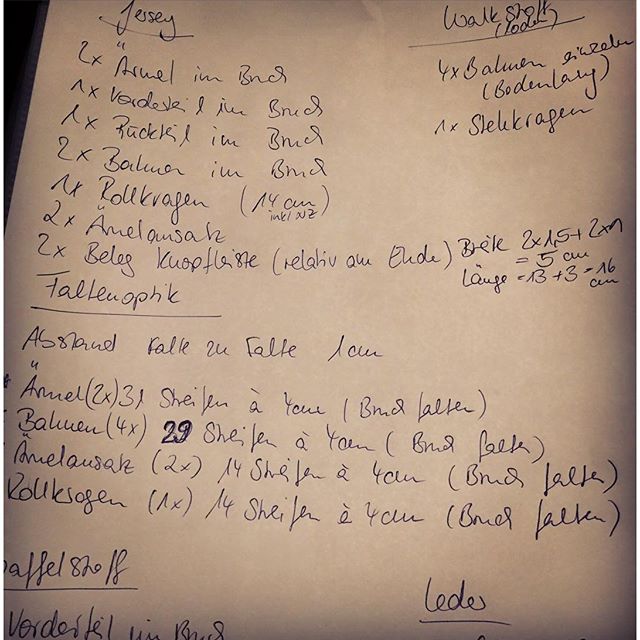 Jersey
2x Ärmel im Bruch
1x Vorderteil im Bruch
1x Rückteil im Bruch
2x Bahnen im Bruch
1x Rollkragen (14 cm
inkl NZ)
2x Ärmelansatz
2x Beleg Knopfleiste (relativ am Ende)
Walkstoff
(Loden)
4x Bahnen einzeln
(Bodenlang)
1x Stehkragen
Breite 2x1,5+2x1
= 5 cm
Länge = 13+3 = 16
cm
Faltenoptik
Abstand Falte zu Falte 1cm
Ärmel (2x) 31 Streifen à 4cm (Bruch falten)
Bahnen (4x) 29 Streifen à 4cm (Bruch falten)
Ärmelansatz (2x) 14 Streifen à 4cm (Bruch falten)
Rollkragen (1x) 14 Streifen à 4cm (Bruch falten)
affelstoff
Vorderteil im Bruch
Leder